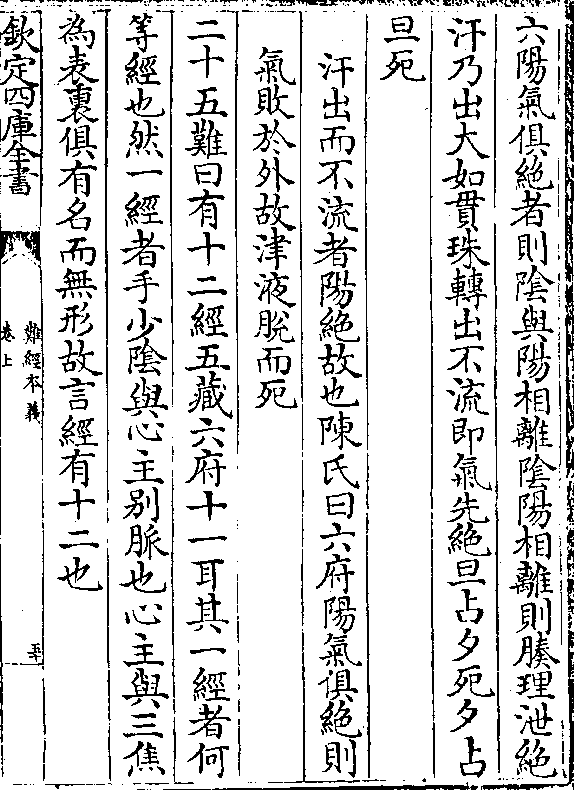 六陽氣俱絶者則陰與陽相離陰陽相離則腠理泄絶
汗乃出大如貫珠轉出不流即氣先絶旦占夕死夕占
旦死
汗出而不流者陽絶故也陳氏曰六府陽氣俱絶則
氣敗於外故津液脫而死
二十五難曰有十二經五藏六府十一耳其一經者何
等經也然一經者手少陰與心主别脈也心主與三焦
為表裏俱有名而無形故言經有十二也
欽定四庫全書
難經本義
卷上